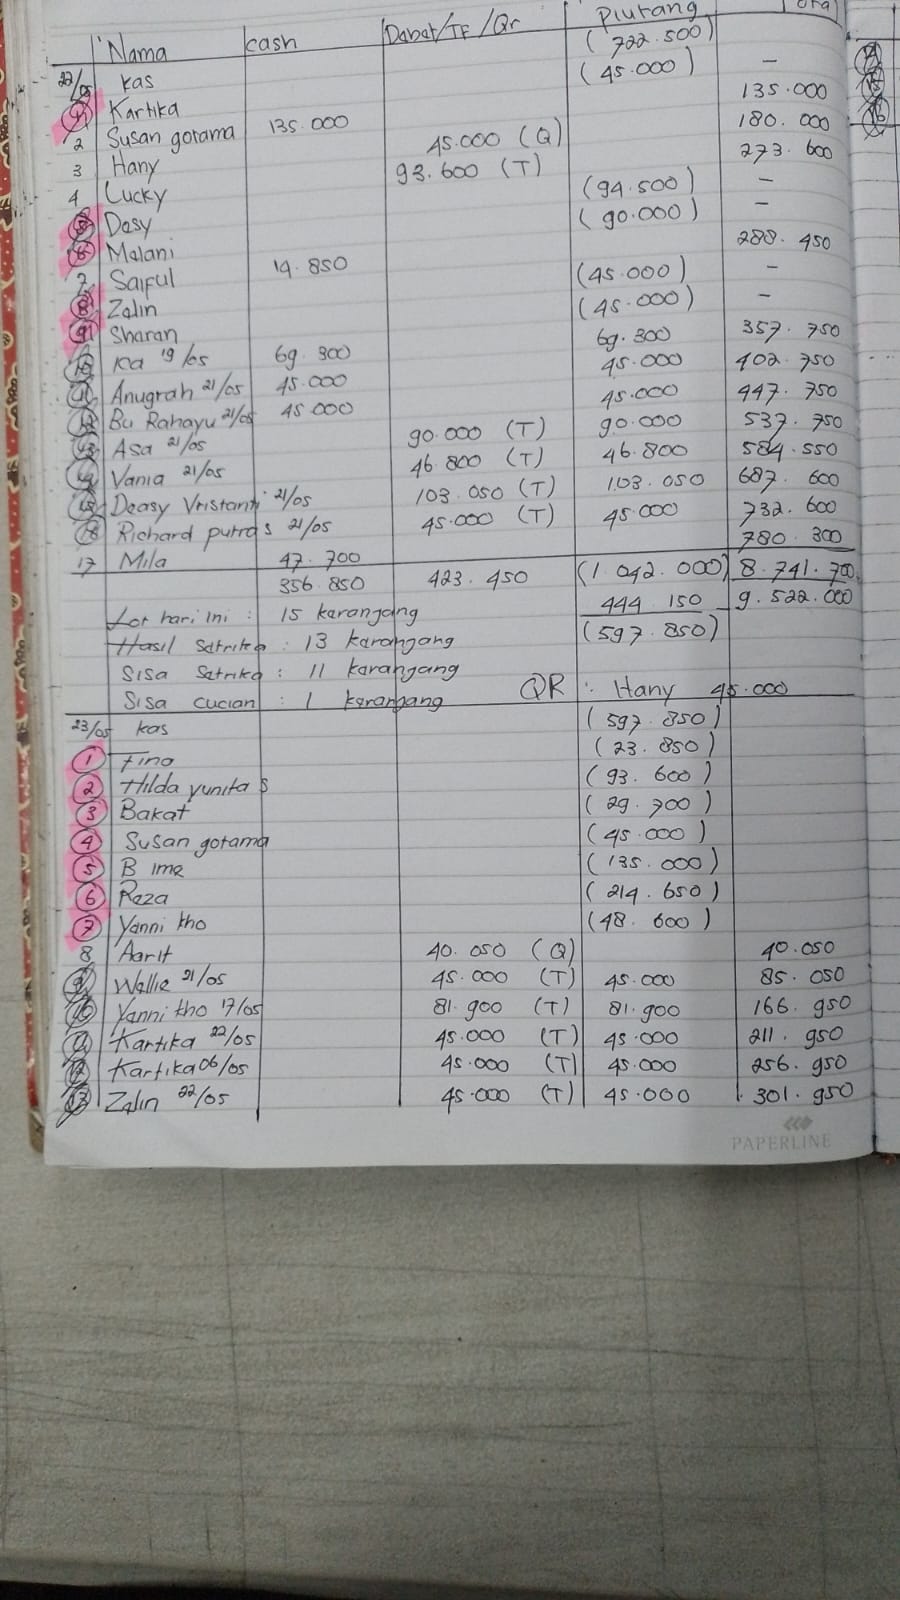 Nama cash Debet/TF/Qr Piutang
22/05 kas (722.500)
1 Kartika (45.000) -
2 Susan gotama 135.000 135.000
3 Hany 45.000 (Q) 180.000
4 Lucky 93.600 (T) 273.600
5 Desy (94.500) -
6 Melani (90.000) -
7 Saiful 14.850 288.450
8 Zelin (45.000) -
9 Sharen (45.000) -
10 Ica 19/05 69.300 69.300 357.750
11 Anugrah 21/05 45.000 45.000 402.750
12 Bu Rahayu 21/05 45.000 45.000 447.750
13 Asa 21/05 90.000 (T) 90.000 537.750
14 Vania 21/05 46.800 (T) 46.800 584.550
15 Deasy Vristanti 21/05 103.050 (T) 103.050 687.600
16 Richard putra s 21/05 45.000 (T) 45.000 732.600
17 Mila 47.700 780.300
356.850 423.450 (1.042.000) 8.741.700
Lot hari ini : 15 keranjang 444.150 9.522.000
Hasil Setrika : 13 keranjang (597.850)
Sisa Setrika : 11 keranjang
Sisa cucian : 1 keranjang QR : Hany 45.000
23/05 kas (597.850)
1 Fino (23.850)
2 Hilda yunita s (93.600)
3 Bakat (29.700)
4 Susan gotama (45.000)
5 B ime (135.000)
6 Reza (214.650)
7 Yanni kho (48.600)
8 Aarit 40.050 (Q) 40.050
9 Wellie 21/05 45.000 (T) 45.000 85.050
10 Yanni kho 17/05 81.900 (T) 81.900 166.950
11 Kartika 22/05 45.000 (T) 45.000 211.950
12 Kartika 06/05 45.000 (T) 45.000 256.950
13 Zelin 22/05 45.000 (T) 45.000 301.950
PAPERLINE